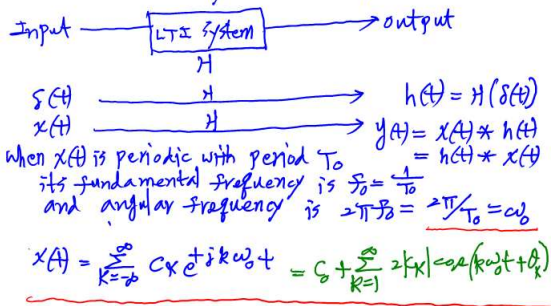 Input LTI System output
H
δ(t) H h(t) = H(δ(t))
x(t) H y(t) = x(t) * h(t)
when x(t) is periodic with period T₀ = h(t) * x(t)
its fundamental frequency is f₀ = 1/T₀
and angular frequency is 2πf₀ = 2π/T₀ = ω₀
x(t) = ∑_{k=-∞}^{∞} C_k e^{+jkω₀t} = C₀ + ∑_{k=1}^{∞} 2|C_k| cos(kω₀t + θ_k)